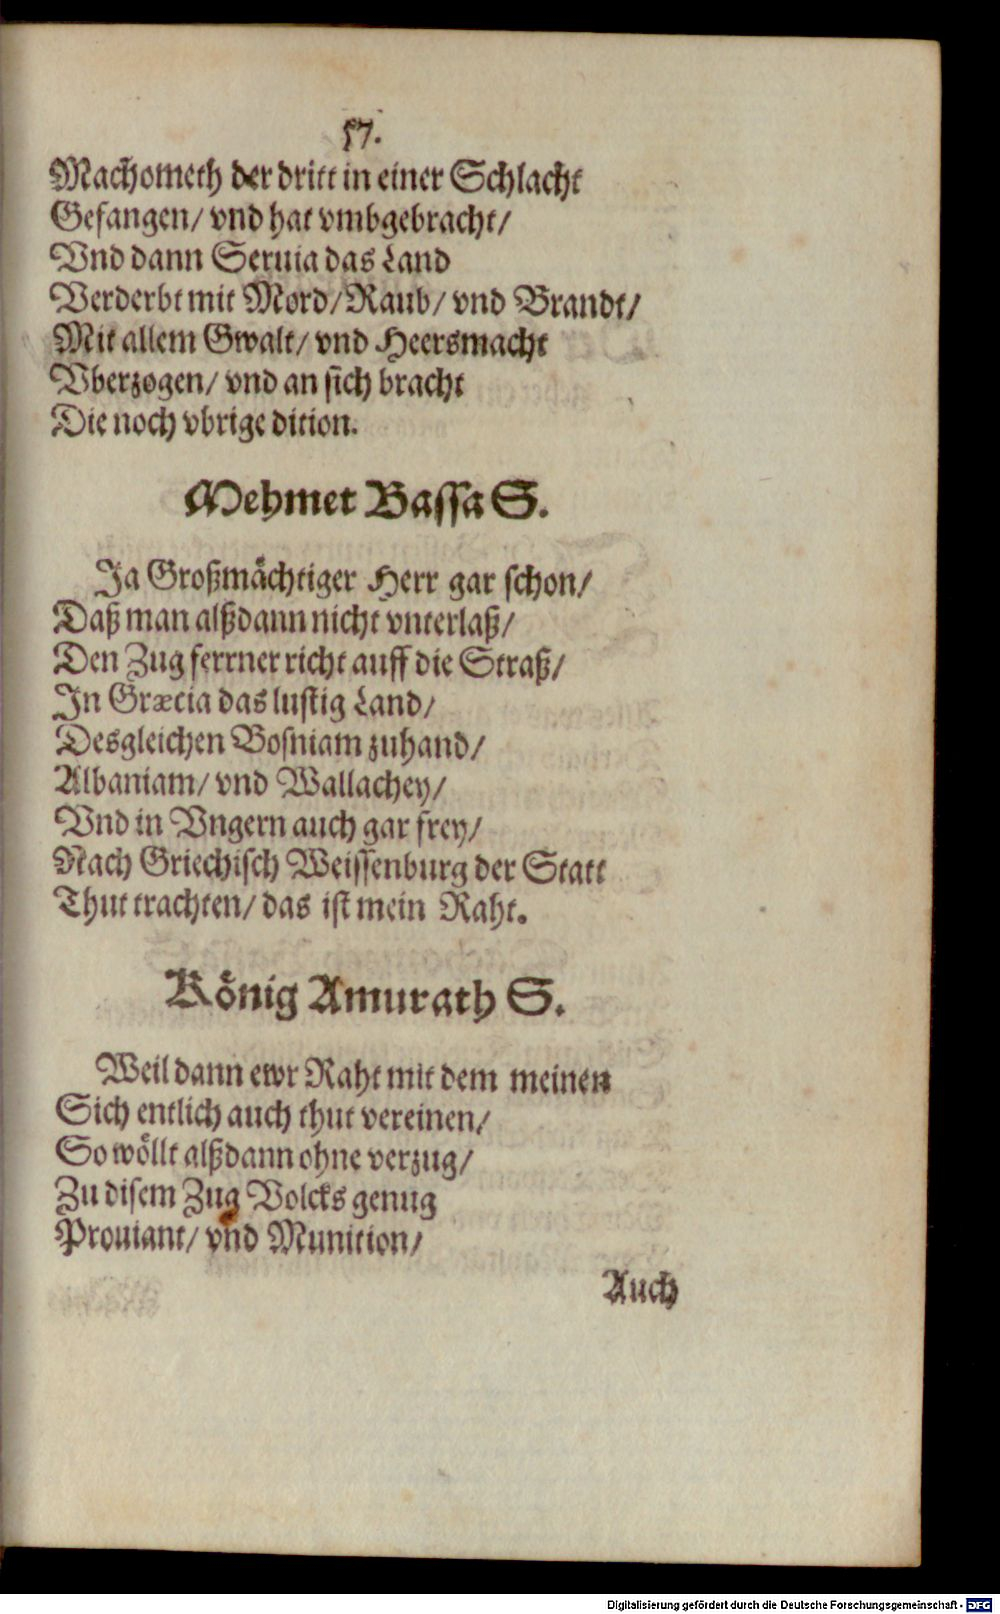 57.
Machometh der dritt in einer Schlacht
Gefangen/ vnd hat vmbgebracht/
Vnd dann Seruia das Land
Verderbt mit Mord/ Raub/ vnd Brandt/
Mit allem Gwalt/ vnd Heersmacht
Vberzogen/ vnd an sich bracht
Die noch vbrige dition.
Mehmet Bassa S.
Ja Großmächtiger Herr gar schon/
Daß man alßdann nicht vnterlaß/
Den Zug ferrner richt auff die Straß/
In Græcia das lustig Land/
Desgleichen Bosniam zuhand/
Albaniam/ vnd Wallachey/
Vnd in Vngern auch gar frey/
Nach Griechisch Weissenburg der Statt
Thut trachten/ das ist mein Raht.
König Amurath S.
Weil dann ewr Raht mit dem meinen
Sich entlich auch thut vereinen/
So wöllt alßdann ohne verzug/
Zu disem Zug Volcks genug
Prouiant/ vnd Munition/
Auch
Digitalisierung gefördert durch die Deutsche Forschungsgemeinschaft - DFG